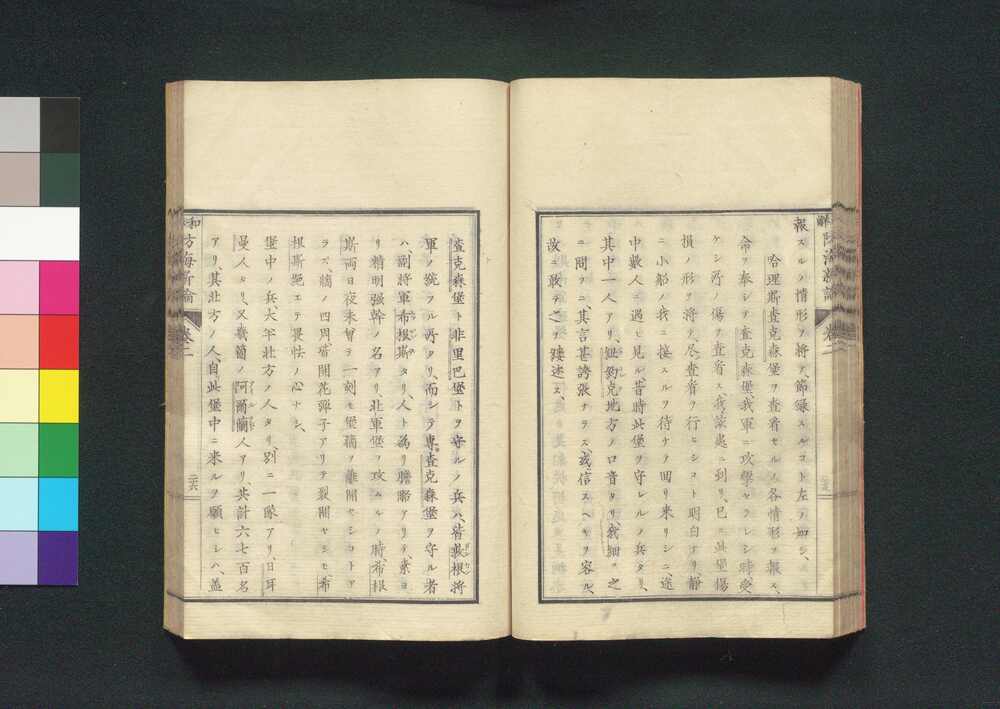 報スルノ情形ヲ將テ、節録スルコト左ノ如シ、
哈理斯査克森堡ヲ査看セルノ各情形ヲ報ス、
命ヲ奉シテ査克森堡我軍ニ攻擊セラレシ時受
ケシ所ノ傷ヲ査看ス我深處ニ到リ、已ニ此堡傷
損ノ形ヲ將テ、盡査看ヲ行ヒシコト明白ナリ靜
ニ小船ノ我ニ接スルヲ待チテ回リ來リシニ途
中數人ニ遇ヒ見ル昔時此堡ヲ守レルノ兵タリ、
其中一人アリ、紐鈞克地方ノ口音タリ、我細ニ之
ニ問フニ、其言甚誇張ナラス、或信スヘキヲ容ル、
故ニ敢テ之ヲ縷述ス、
査克森堡ト非里巴堡トヲ守ルノ兵ハ、皆根將
軍ノ統フル所タリ、而シテ專査克森堡ヲ守ル者
ハ、副將軍希根斯タリ、人ト為リ膽略アリテ、素ヨ
リ精明強幹ノ名アリ、北軍堡ヲ攻ムルノ時、希根
斯兩日夜未曾テ一刻モ堡牆ヲ離開セシコトア
ラス、牆ノ四周皆開花彈子アリテ裂開セシモ希
根斯絶エテ畏怯ノ心ナシ、
堡中ノ兵、大半北方ノ人タリ、別ニ一隊アリ、日耳
曼人タリ、又幾箇ノ阿爾蘭人アリ、共計六七百名
アリ、其北方ノ人、自此堡中ニ來ルヲ願ヒシハ、蓋
卷二
二六